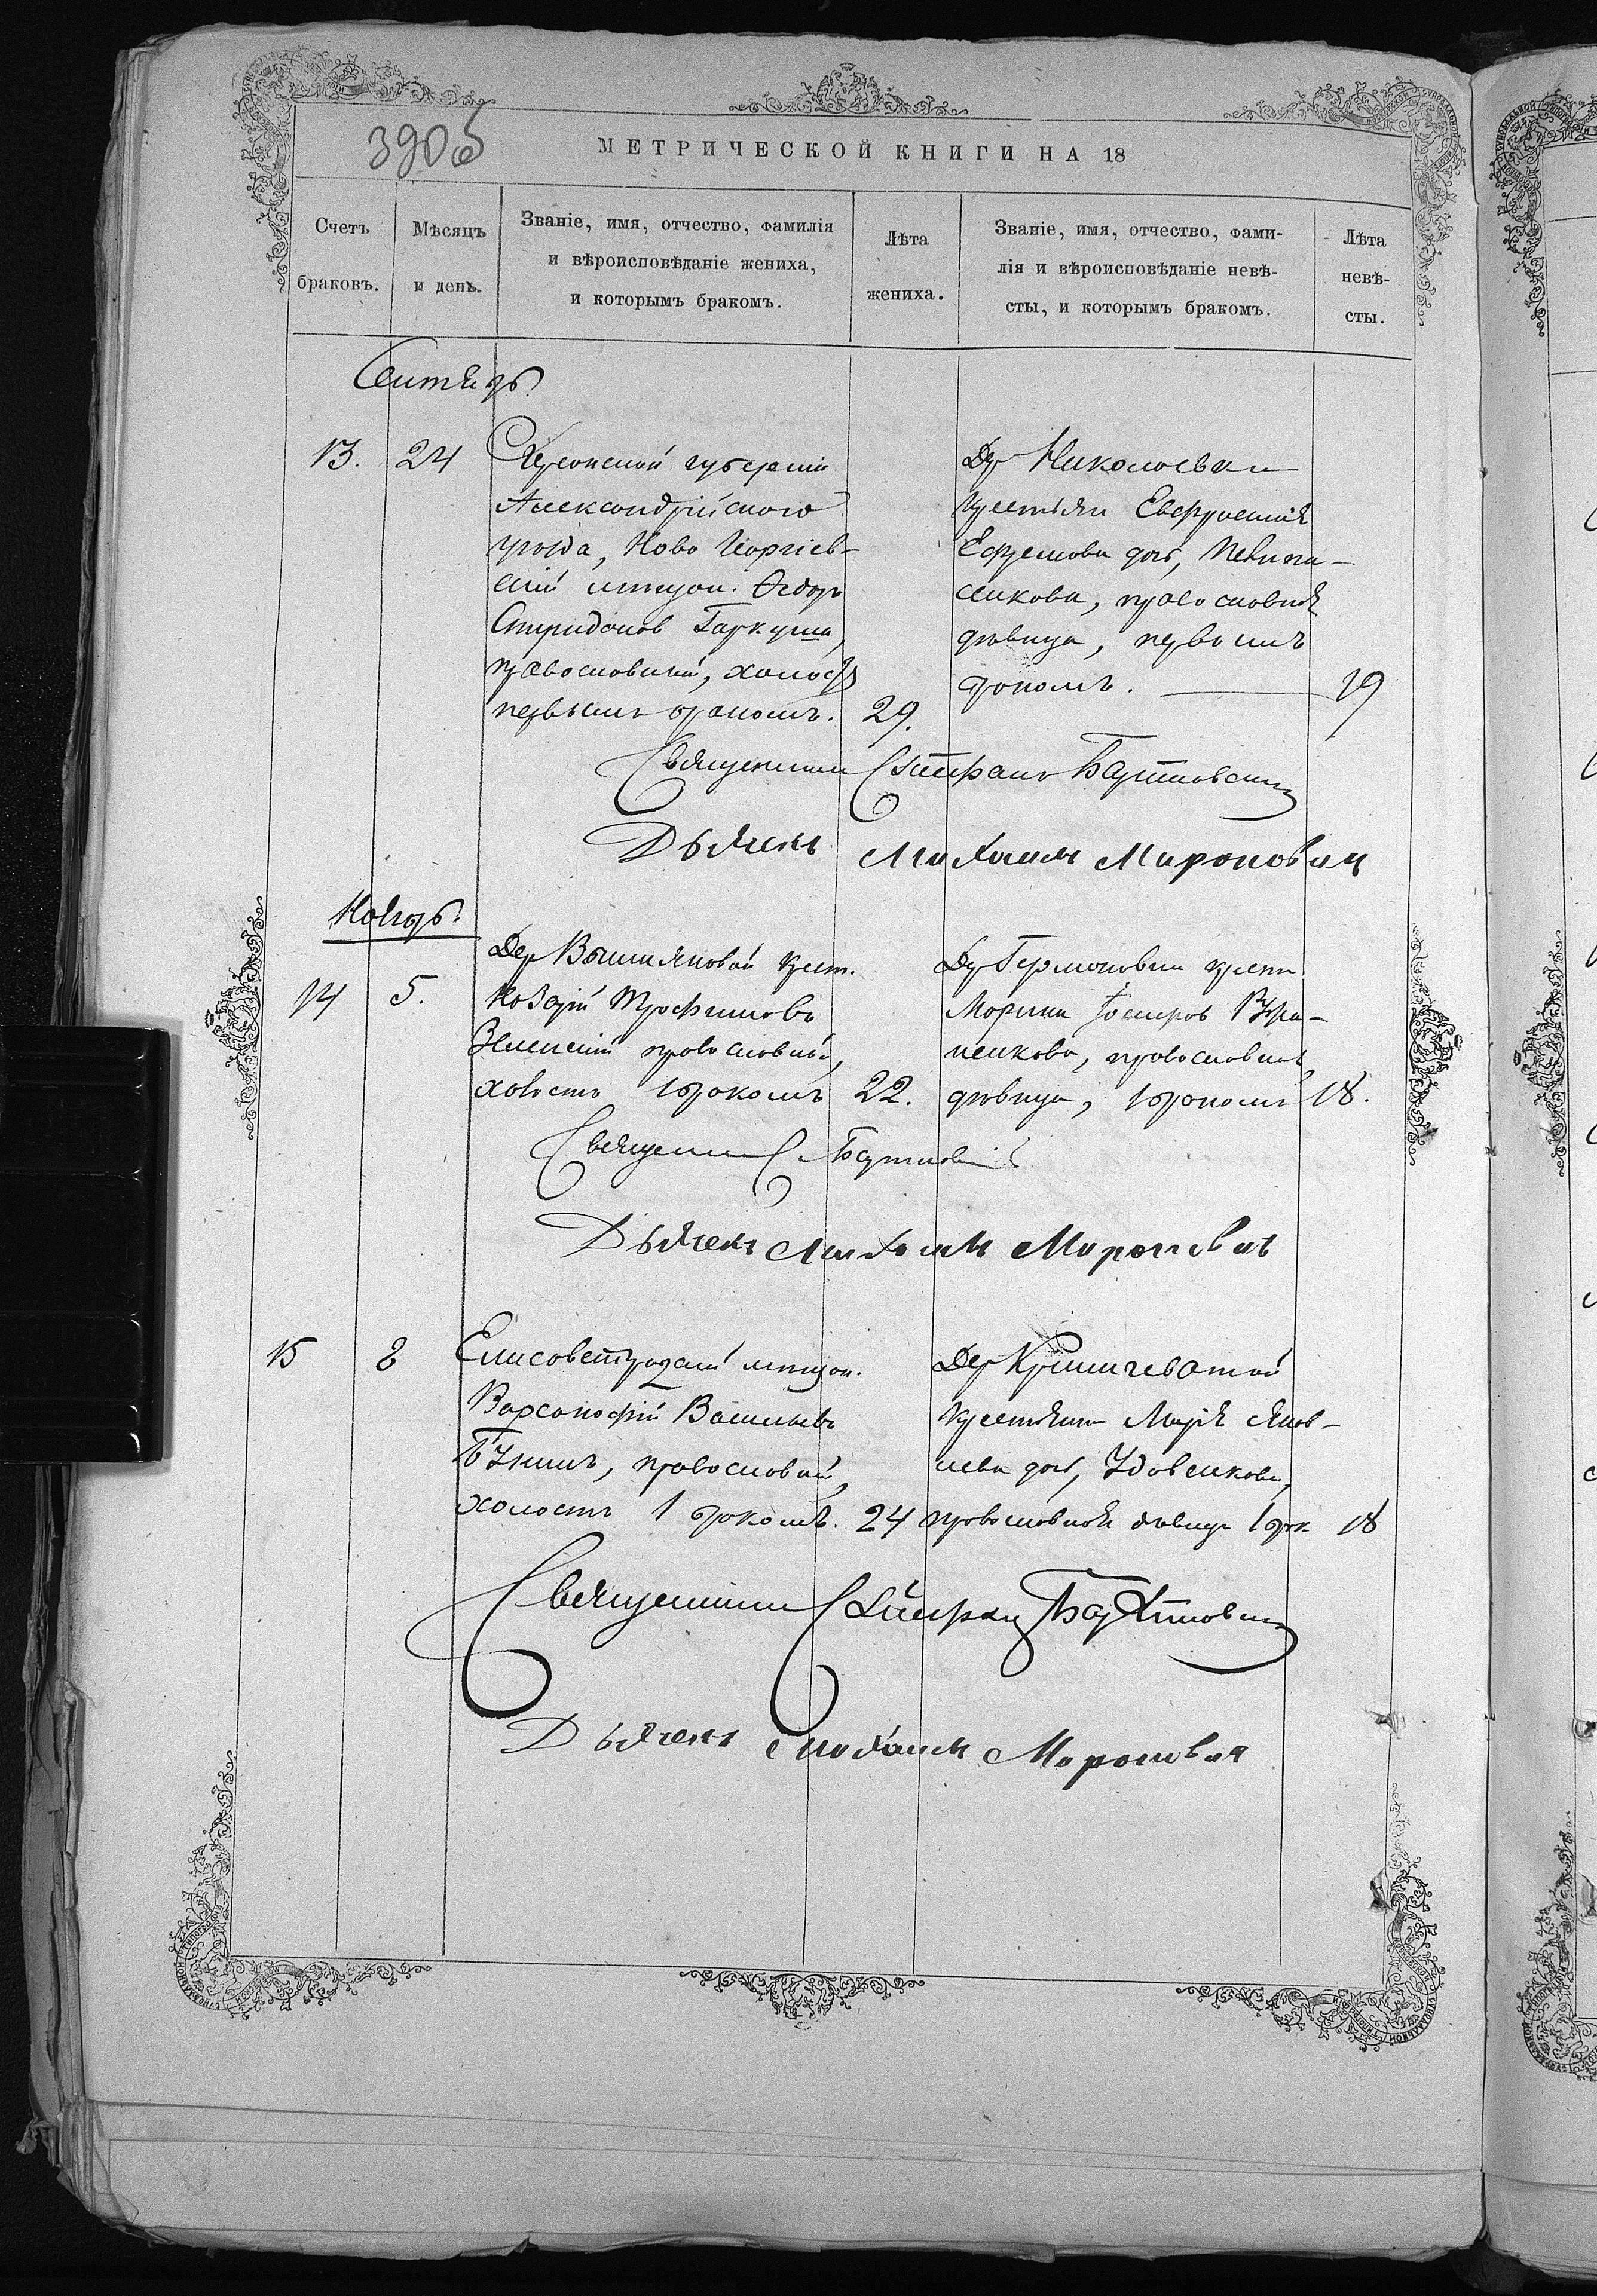 390об
МЕТРИЧЕСКОЙ КНИГИ НА 18
Счетъ браковъ.
Мѣсяцъ и день.
Званіе, имя, отчество, фамилія
и вѣроисповѣданіе жениха,
и которымъ бракомъ.
Лѣта жениха.
Званіе, имя, отчество, фами-
лія и вѣроисповѣданіе невѣ-
сты, и которымъ бракомъ.
Лѣта невѣ-
сты.
Сентябр.
13. 24
Херсонской губерніи
Александрійского
уезда, Ново Георгіев-
скій мѣщан. Ѳедоръ
Спиридонов Гаркуша,
православный, холост
первымъ бракомъ. 29.
Др Николаевки
крестьян Евфросинія
Ефремова доч,
православная
дѣвица, первымъ
бракомъ. 19
Священникъ Стефанъ
Дьячекъ Михаилъ Миронович
Ноябр.
14 5.
Дер крест.
Трофимовъ
православный,
холостъ 1 бракомъ 22.
Др крест
православная
дѣвица, 1 бракомъ 18.
Священникъ С
Дьячекъ Михаилъ Мироновичъ
15 8
Елисаветградскій мѣщан.
Варсанофій Васильевъ
православный,
холостъ 1 бракомъ. 24
Дер Криничеватой
крестьянка Марія Яков-
лева доч, Удовенкова,
православная дѣвица 1 брак 18
Священникъ Стефанъ
Дьячекъ Михаилъ Миронович